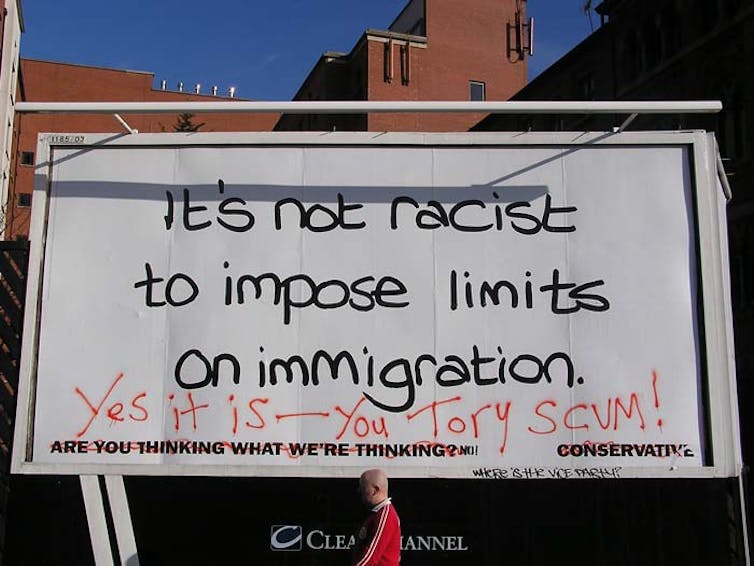 1185/03
It's not racist
to impose limits
on immigration.
Yes it is — You Tory SCUM!
ARE YOU THINKING WHAT WE'RE THINKING? NO! CONSERVATIVE
WHERE IS THE VICE PARTY?
CLEA ANNEL